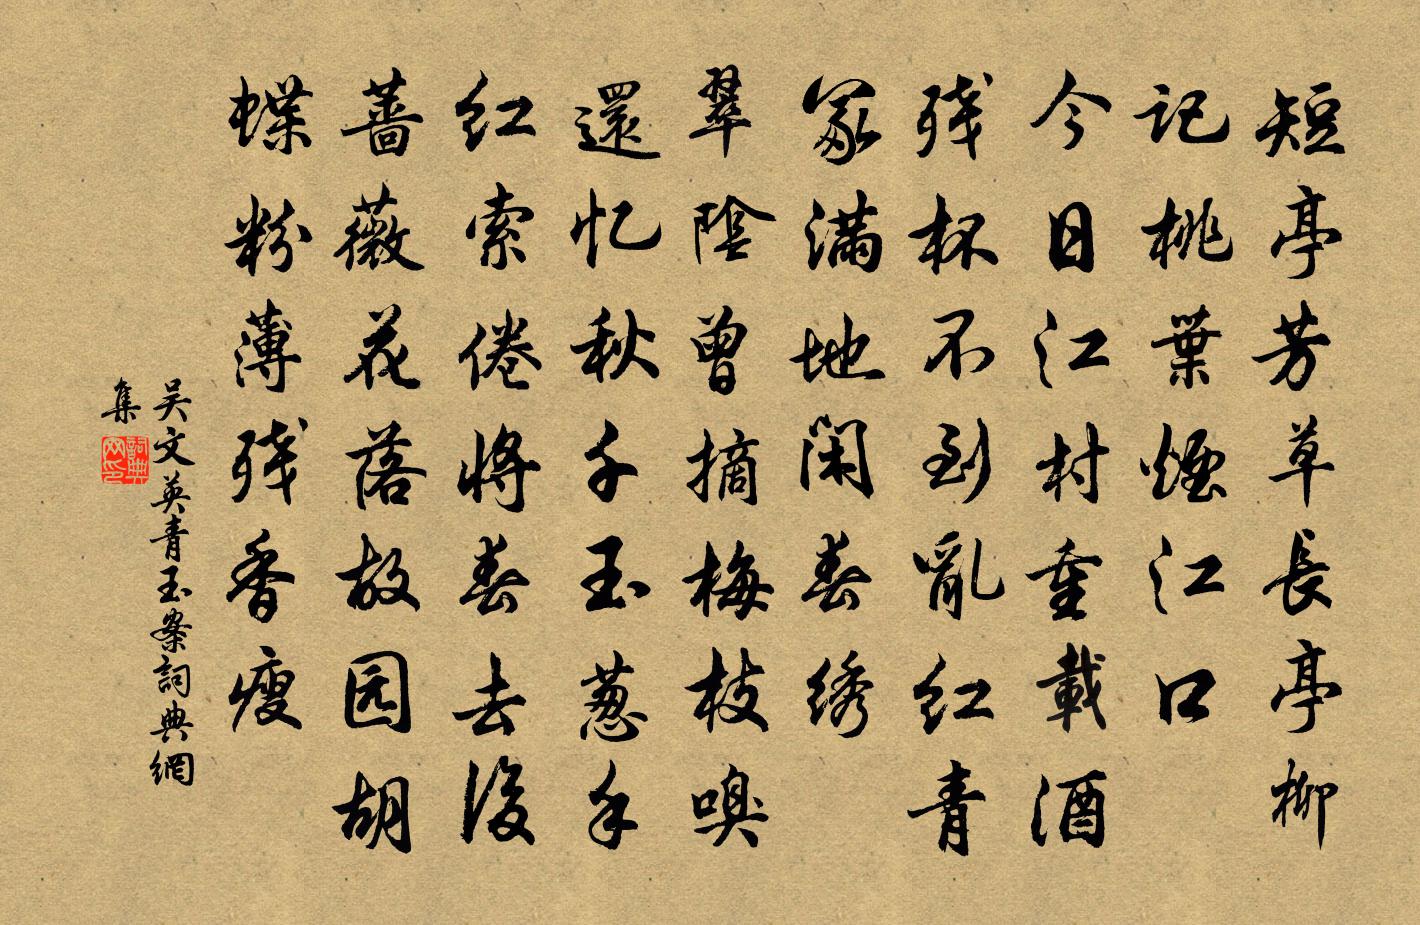 短亭芳草長亭柳
记桃葉煙江口
今日江村重載酒
残杯不到亂红青
冢满地闲春绣
翠陰曾摘梅枝嗅
還忆秋千玉葱手
红索倦将春去後
蔷薇花落故园胡
蝶粉薄残香瘦
吴文英青玉案詞典網
集